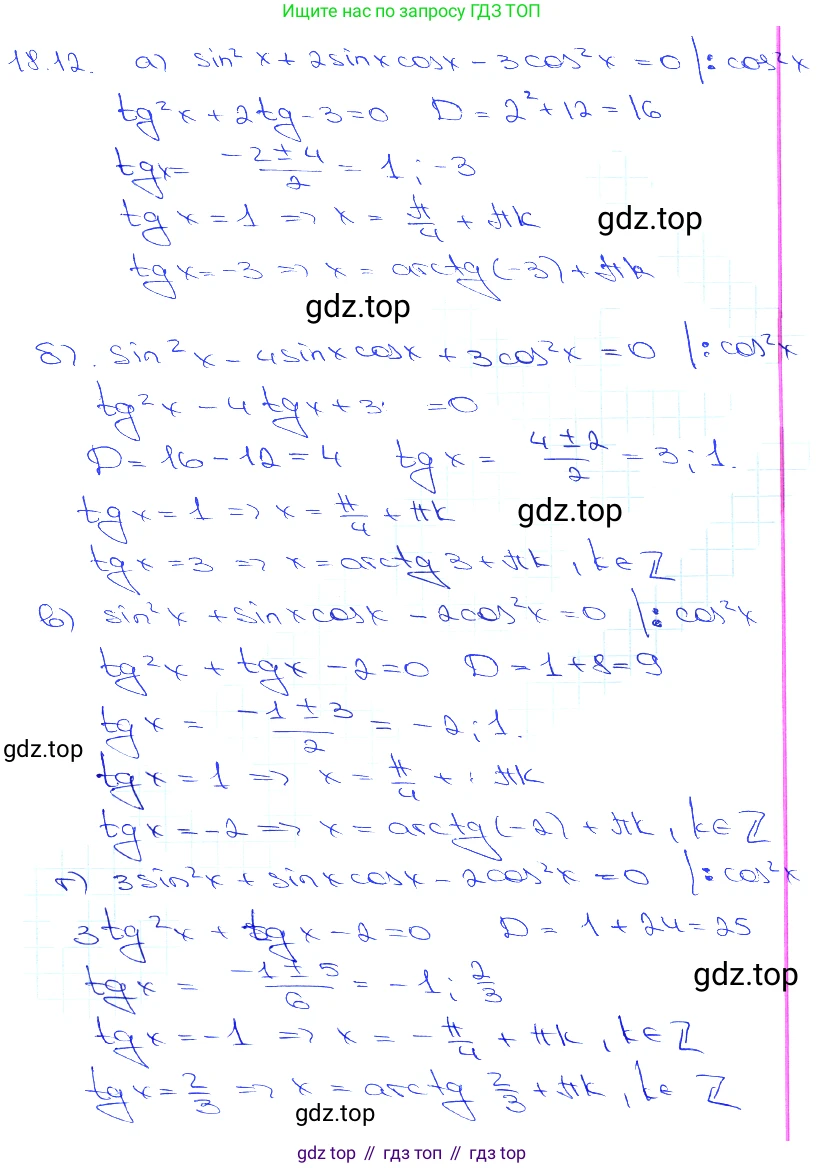 Ищите нас по запросу ГДЗ ТОП
18.12. а) sin²x + 2sinxcosx - 3cos²x = 0 |: cos²x
tg²x + 2tg - 3 = 0 D = 2² + 12 = 16
tgx = (-2 ± 4)/2 = 1; -3
tg x = 1 => x = π/4 + πk
gdz.top
tgx = -3 => x = arctg(-3) + πk
gdz.top
б). sin²x - 4sinxcosx + 3cos²x = 0 |: cos²x
tg²x - 4tgx + 3 = 0
D = 16 - 12 = 4 tg x = (4 ± 2)/2 = 3; 1.
tgx = 1 => x = π/4 + πk
gdz.top
tgx = 3 => x = arctg 3 + πk, k∈ℤ
в) sin²x + sinxcosx - 2cos²x = 0 |: cos²x
tg²x + tgx - 2 = 0 D = 1 + 8 = 9
tgx = (-1 ± 3)/2 = -2; 1.
gdz.top
tgx = 1 => x = π/4 + πk
tgx = -2 => x = arctg(-2) + πk, k∈ℤ
г) 3sin²x + sinxcosx - 2cos²x = 0 |: cos²x
3tg²x + tgx - 2 = 0 D = 1 + 24 = 25
tgx = (-1 ± 5)/6 = -1; 2/3
gdz.top
tgx = -1 => x = -π/4 + πk, k∈ℤ
tgx = 2/3 => x = arctg 2/3 + πk, k∈ ℤ
gdz.top
gdz top // гдз топ // гдз.top